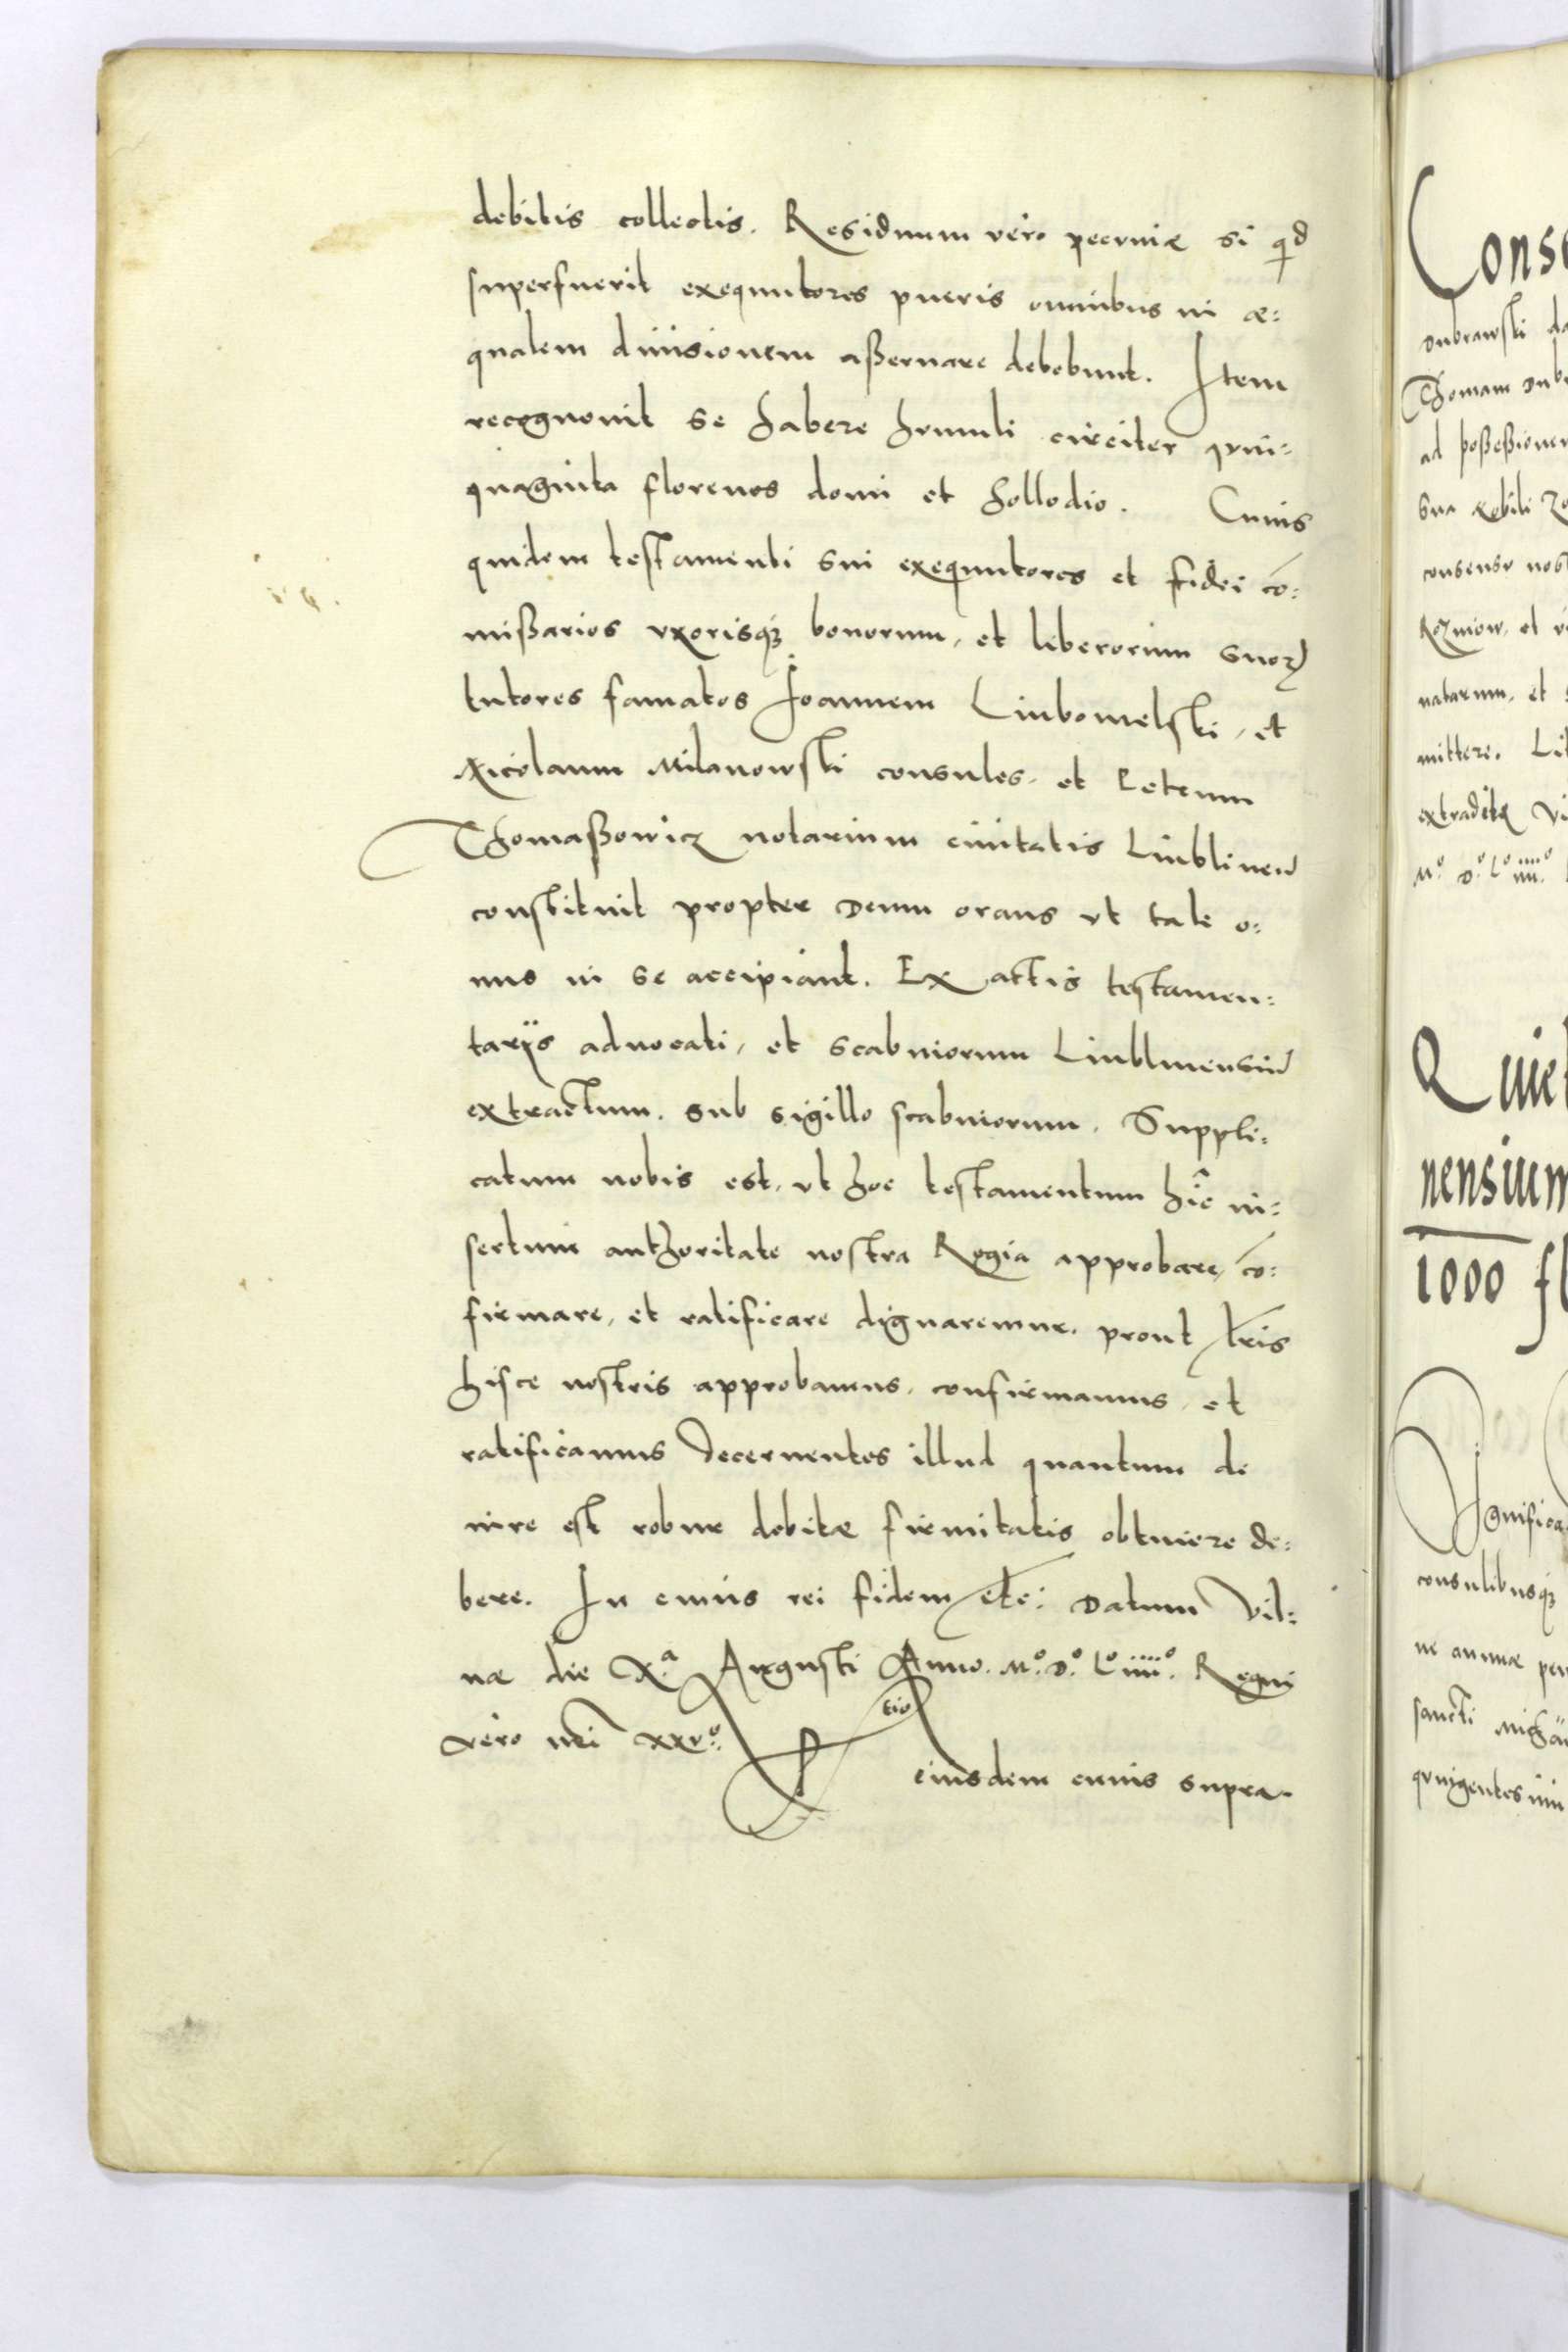 debitis collectis. Residuum vero pecuniæ si qd
superfuerit exequutores pueris omnibus in æ:
qualem diuisionem aßeruare debebunt. Item
recognouit se habere humuli circiter quin:
quaginta florenos domi et hollodio. Cuius
quidem testamenti sui exequutores et fidei co:
mißarios vxorisqꝫ bonorum, et liberorum suoꝝ
tutores famatos Joannem Liubomelski, et
Nicolaum Milanowski consules, et Petrum
Thomaßowicz notarium ciuitatis Liublinen
constituit propter Deum orans vt tale o:
nus in se accipiant. Ex actis testamen:
tarijs aduocati, et scabinorum Liublinensiu
extractum, sub sigillo scabinorum. Suppli:
catum nobis est, vt hoc testamentum hic in:
sertum authoritate nostra Regia approbare, co:
firmare, et ratificare dignaremur, prout lris
hisce nostris approbamus, confirmamus, et
ratificamus Decernentes illud quantum de
iure est robur debitæ firmitatis obtinere de:
bere. In cuius rei fidem etc: Datum Vil:
næ die Xª Augusti Anno. Mº. Dº. Lº iiiiº. Regni
vero nri xxvº.
Rtio eiusdem cuius supra.
Conse
Dubrawski da
Thomam Dub
ad poßeßionem
sua nobili Zo
consensu nost
Roznow, et vi
natarum, et s
mittere. Lit
extraditæ Vi
Mº. Dº. Lº iiiiº
Quiet
nensium
1000 fl
Significa
consulibusqꝫ
ue annuæ pen
sancti Micha
quingentesim